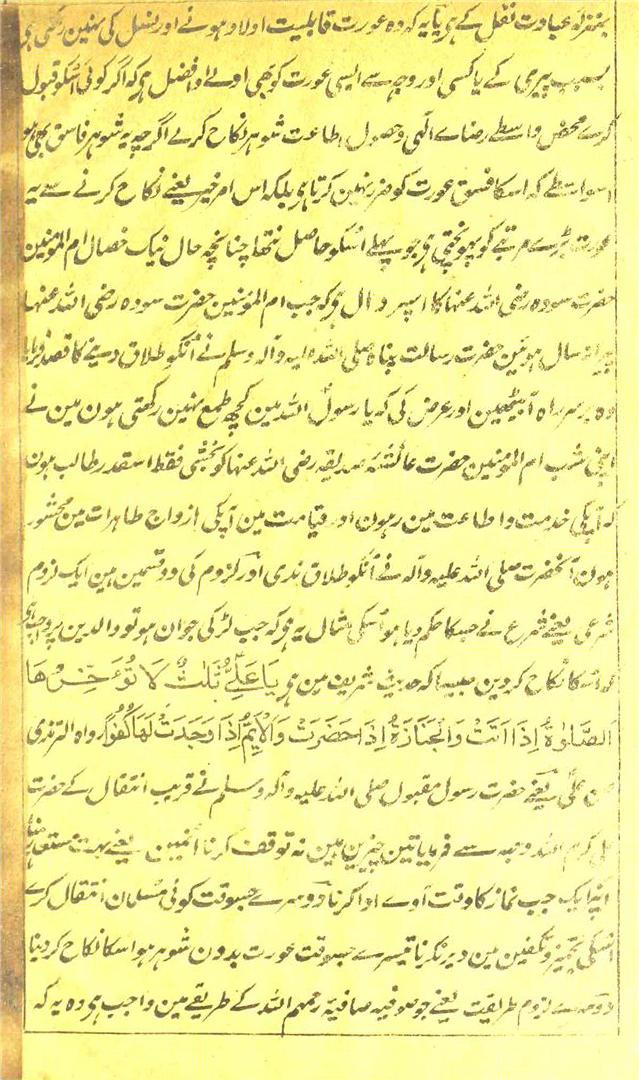 بمنزلہ عبادت نفل کے ہی یا یہ کہ وہ عورت قابلیت اولاد ہونے اور نسل کی نہین رکھتی ہی
بسبب پیری کے یا کسی اور وجہ سے ایسی عورت کو بھی اولے او افضل ہی کہ اگر کوئی اسکو قبول
کرے محض واسطے رضاے الٰہی وحصول اطاعت شوہر نکاح کرلے اگرچہ یہ شوہر فاسق بھی ہو
اسواسطے کہ اسکا فسق عورت کو ضرر نہین کرتا ہی بلکہ اس امر خیر یعنے نکاح کرنے سے یہ
عورت بڑے مرتبے کو پہونچتی ہی جو پہلے اسکو حاصل نتھا چنانچہ حال نیک خصال ام المؤمنین
حضرت سودہ رضی اللہ عنہا کا اسپر دال ہی کہ جب ام المؤمنین حضرت سودہ رضی اللہ عنہا
سال ہوئین حضرت رسالت پناہ صلی اللہ علیہ وآلہ وسلم نے انکو طلاق دینے کا قصد فرمایا
وہ برسر راہ آبیٹھین اور عرض کی کہ یا رسول اللہ مین کچھ طمع نہین رکھتی ہون مین نے
اپنی شب ام المؤمنین حضرت عائشہ صدیقہ رضی اللہ عنہا کو بخشی فقط اسقدر طالب ہون
کہ آپکی خدمت واطاعت مین رہون اور قیامت مین آپکی ازواج طاہرات مین محشور
ہون آنحضرت صلی اللہ علیہ وآلہ نے انکو طلاق ندی اور لزوم کی دو قسمین ہین ایک لزوم
شرعی یعنے شرع نے جسکا حکم دیا ہو اسکی مثال یہ ہی کہ جب لڑکی جوان ہو تو والدین پر واجب ہی
کہ اسکا نکاح کردین جیسا کہ حدیث شریف مین ہی یَا عَلِیُّ ثَلٰثٌ لَا تُؤَخِّرْهَا
اَلصَّلٰوةُ اِذَا اَتَتْ وَالْجَنَازَةُ اِذَا حَضَرَتْ وَالْاَیِّمُ اِذَا وَجَدَتْ لَهَا كُفُوًا رواہ الترمذی
عن علی یعنے حضرت رسول مقبول صلی اللہ علیہ وآلہ وسلم نے قریب انتقال کے حضرت
علی کرم اللہ وجہہ سے فرمایا تین چیزین ہین نہ توقف کرنا انمین یعنے بہت مستعد رہنا
ایک جب نماز کا وقت آوے ادا کرنا دوسرے جسوقت کوئی مسلمان انتقال کرے
اسکی تجہیز وتکفین مین دیر نکرنا تیسرے جسوقت عورت بدون شوہر ہو اسکا نکاح کردینا
دوسرے لزوم طریقت یعنے جو صوفیہ صافیہ رحمہم اللہ کے طریقے مین واجب ہی وہ یہ کہ